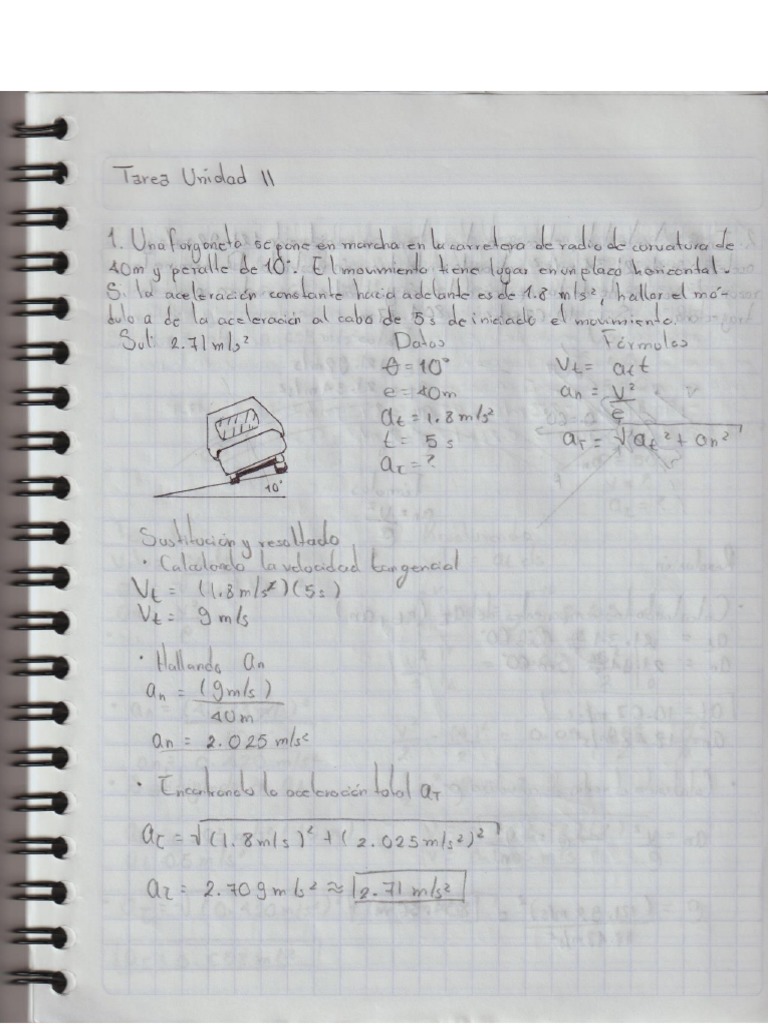 Tarea Unidad II
1. Una furgoneta se pone en marcha en la carretera de radio de curvatura de
40m y peralte de 10°. El movimiento tiene lugar en un placo horizontal.
Si la aceleración constante hacia adelante es de 1.8 m/s², hallar el mó-
dulo a de la aceleración al cabo de 5s de iniciado el movimiento.
Sol: 2.71 m/s²
Datos
θ = 10°
e = 40m
at = 1.8 m/s²
t = 5 s
aτ = ?
Fórmulas
Vt = at t
an = V²/ρ
aT = √at² + an²
10°
Sustitución y resultado
• Calculado la velocidad tangencial
Vt = (1.8 m/s²)(5s)
Vt = 9 m/s
• Hallando an
an = (9m/s)/40m
an = 2.025 m/s²
• Encontrando la aceleración total aT
aτ = √(1.8 m/s)² + (2.025 m/s²)²
aτ = 2.709 m/s² ≈ 2.71 m/s²